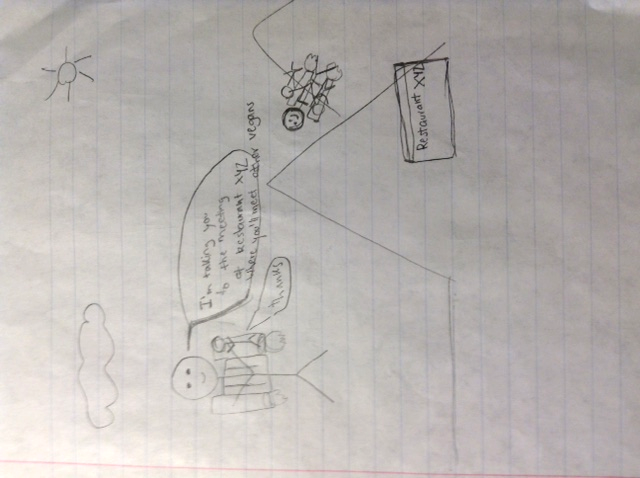 I'm taking you
to the meeting
at Restaurant XYZ
where you'll meet other vegans
thanks
Restaurant XYZ